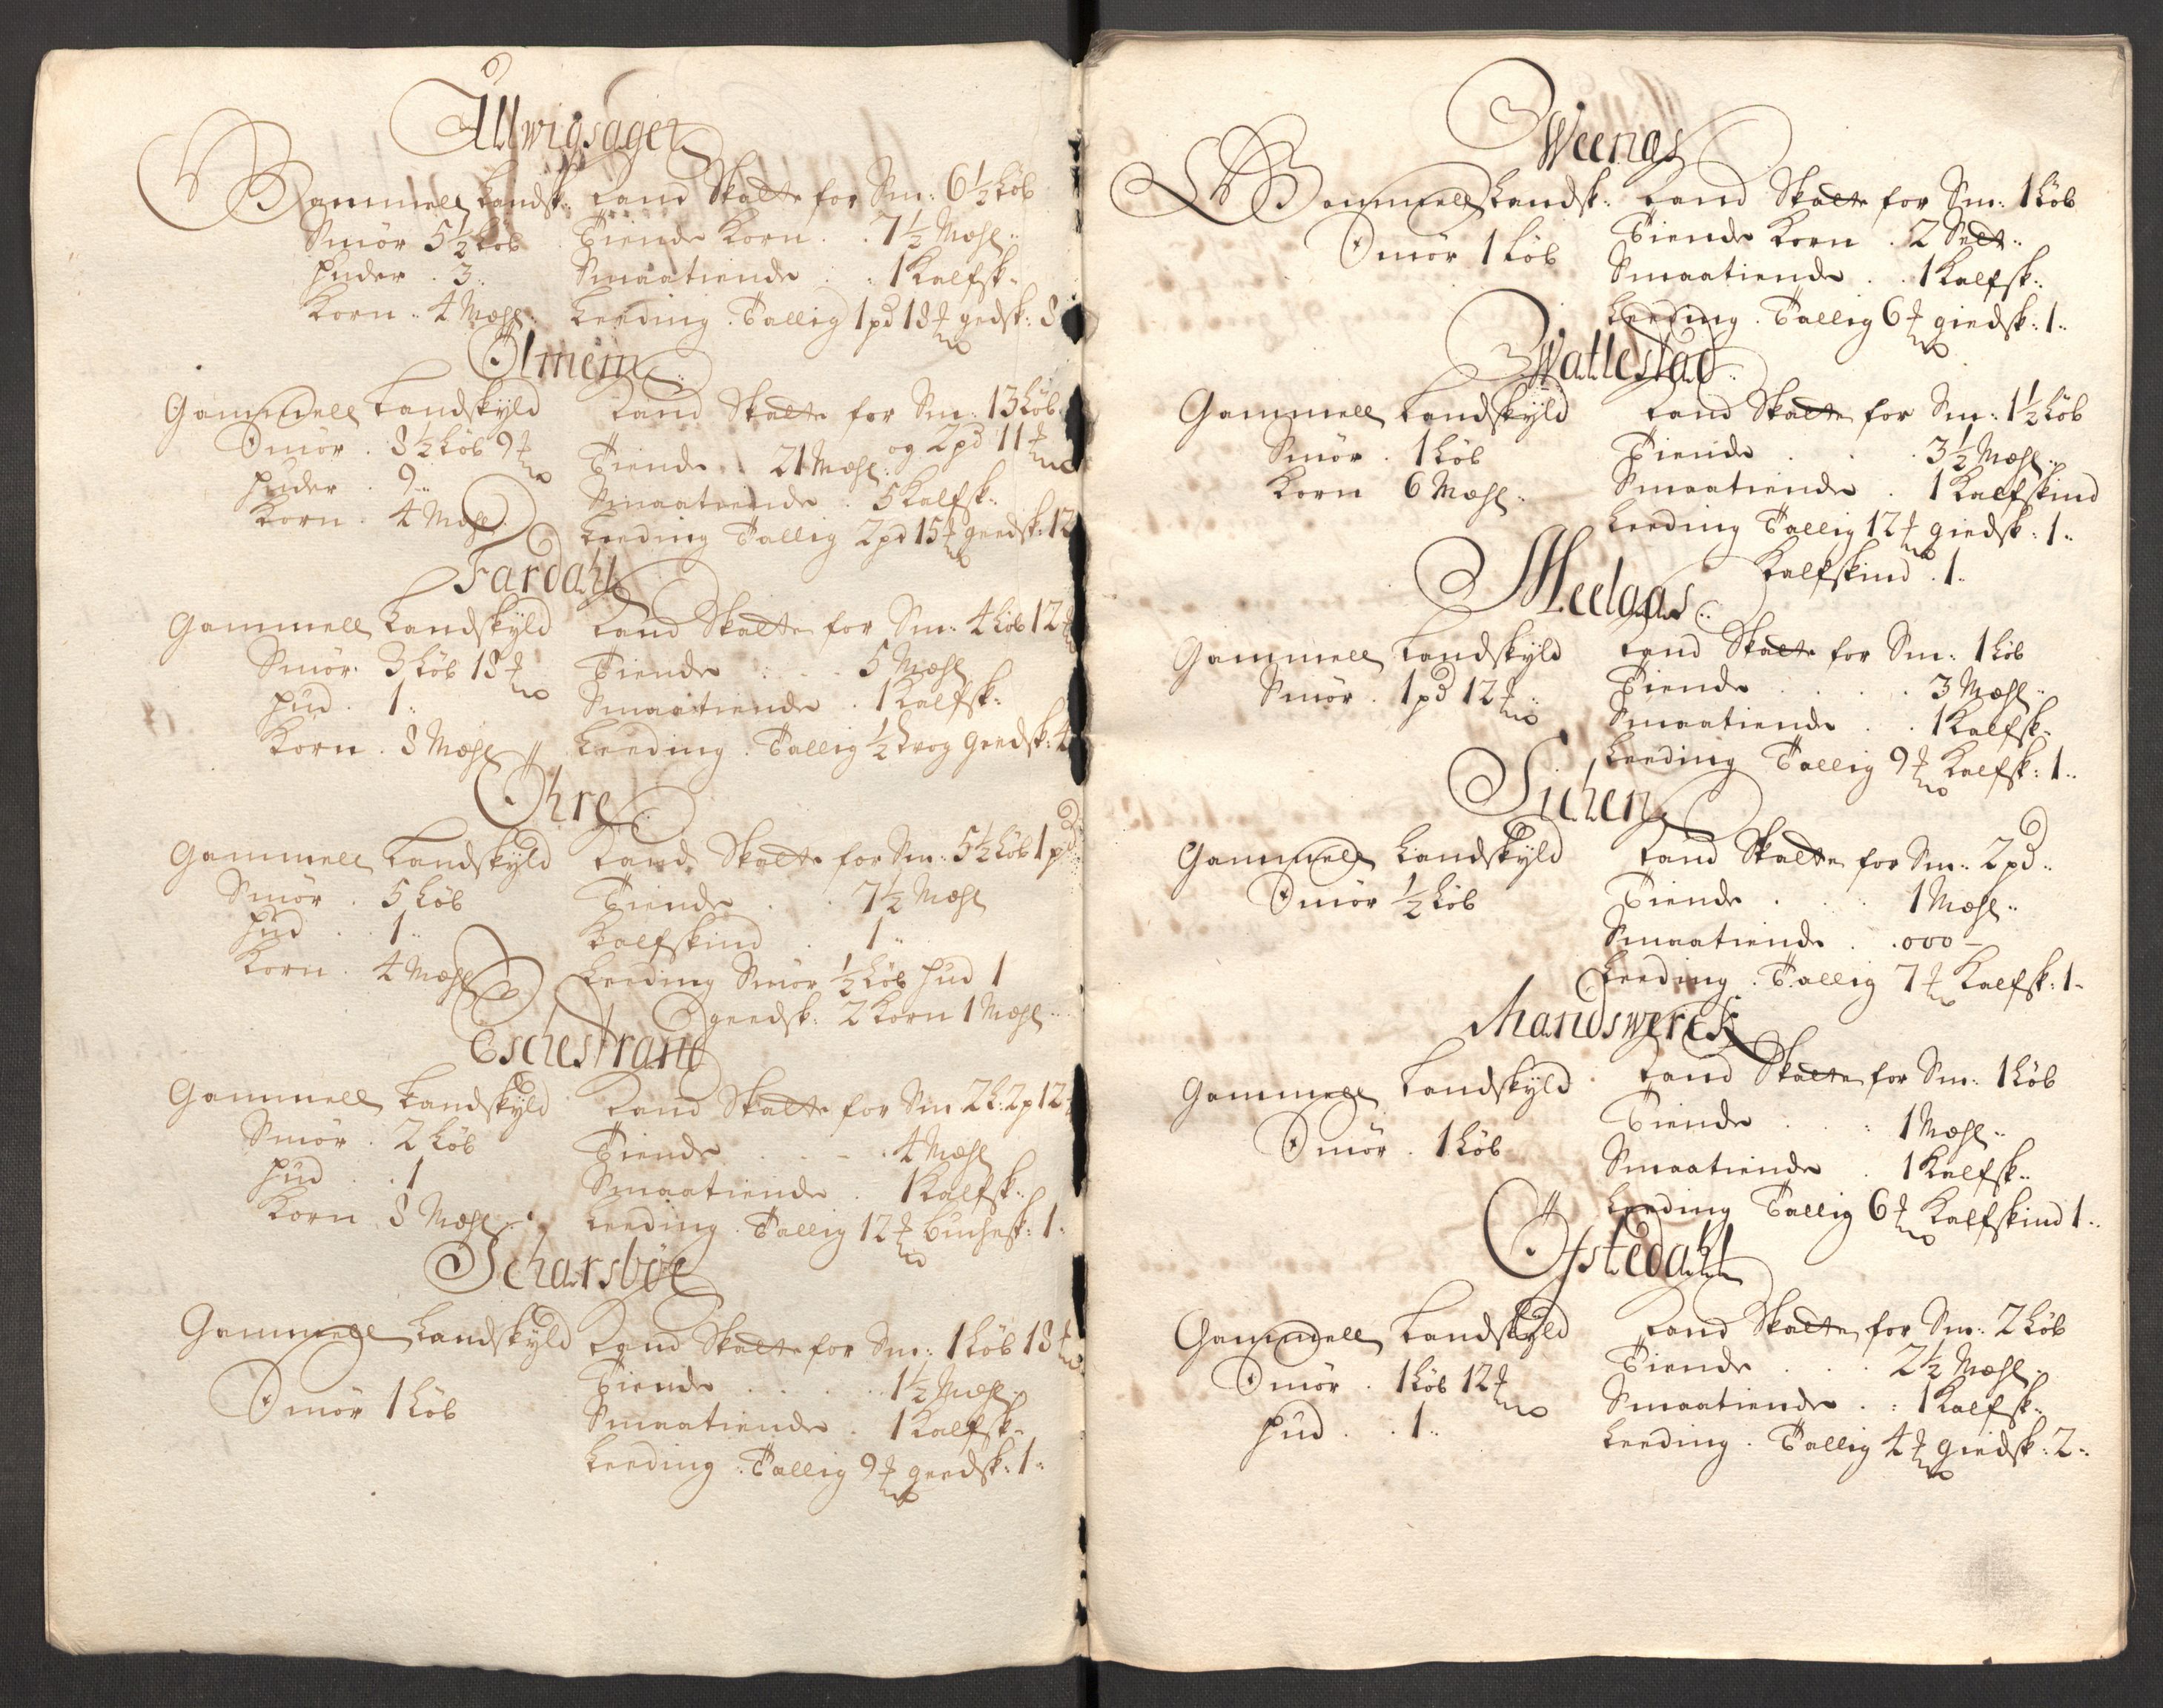 Allwigsager
Gammell Landsk: Land Skatte for Sm: 6½ Løb
Smør 5½ Løb Tiende Korn . . 7½ Mæhl..
Huder . 3.. Smaatiende . . 1 Kalfsk..
Korn .. 4 Mæhl.. Leeding . Tallig 1 pd 18 ℔ gedsk: 8
Olmem
Gammell Landskyld Land Skatte for Sm: 13 Løb
og 2 pd 11 ℔
Smør . 8½ Løb 9 ℔ Tiende . . 21 Mæhl..
Huder . 9.. Smaatiende . 5 Kalfsk..
Korn . 4 Mæhl Leeding Tallig 2 pd 15 ℔ geedsk: 12
Fardahl
Gammell Landskyld Land Skatte for Sm: 4 Løb 12 ℔
Smør . 3 Løb 18 ℔ Tiende . . . 5 Mæhl
Hud . 1.. Smaatiende . 1 Kalfsk..
Korn . 8 Mæhl Leeding . Tallig ½ Voog geedsk: 4
Öhre
Gammell Landskyld Land Skatte for Sm: 5½ Løb 1 pd
Smør . 5 Løb Tiende . . 7½ Mæhl
Hud . . 1.. Kalfskind . 1..
Korn . 4 Mæhl Leeding Smør ½ Løb Hud 1
geedsk: 2 Korn 1 Mæhl..
Eschestrand
Gammell Landskyld Land Skatte for Sm 2 L: 2 p 12
Smør . 2 Løb Tiende . . . . 4 Mæhl
Hud . . 1 Smaatiende . 1 Kalfsk..
Korn 8 Mæhl.. Leeding . Tallig 12 ℔ Buchesk: 1..
Scharsbøe
Gammell Landskyld Land Skatte for Sm: 1 Løb 18 ℔
Tiende . . . . . 1½ Mæhl..
Smør 1 Løb Smaatiende . 1 Kalfsk..
Leeding . Tallig 9 ℔ geedsk: 1..
Weengs
Gammell Landsk: Land Skatte for Sm: 1 Løb
Smør 1 Løb Tiende Korn . 2 Selt..
Smaatiende . . 1 Kalfsk..
Leeding . Tallig 6 ℔ giedsk: 1..
Wattlestad
Gammell Landskyld Land Skatte for Sm: 1½ Løb
Smør . 1 Løb Tiende . . . 3½ Mæhl..
Korn 6 Mæhl.. Smaatiende . 1 Kalfskind
Leeding Tallig 12 ℔ giedsk: 1..
Kalfskind . 1..
Meelaas
Gammell Landskyld Land Skatte for Sm: 1 Løb
Smør . 1 pd 12 ℔ Tiende . . . . 3 Mæhl..
Smaatiende . . 1 Kalfsk..
Leeding Tallig 9 ℔ Kalfsk: 1..
Sichen
Gammell Landskyld Land Skatte for Sm: 2 pd..
Smør ½ Løb Tiende . . . 1 Mæhl..
Smaatiende . . 000 –
Leeding . Tallig 7 ℔ Kalfsk: 1-
Mandswerck
Gammell Landskyld Land Skatte for Sm: 1 Løb
Smør . 1 Løb Tiende . . . 1 Mæhl..
Smaatiende . 1 Kalfsk..
Leeding Tallig 6 ℔ Kalfskind 1..
Öfstedahl
Gammell Landskyld Land Skatte for Sm: 2 Løb
Smør . 1 Løb 12 ℔ Tiende . . . 2½ Mæhl..
Hud . . 1.. Smaatiende . . 1 Kalfsk..
Leeding . Tallig 4 ℔ giedsk: 2..